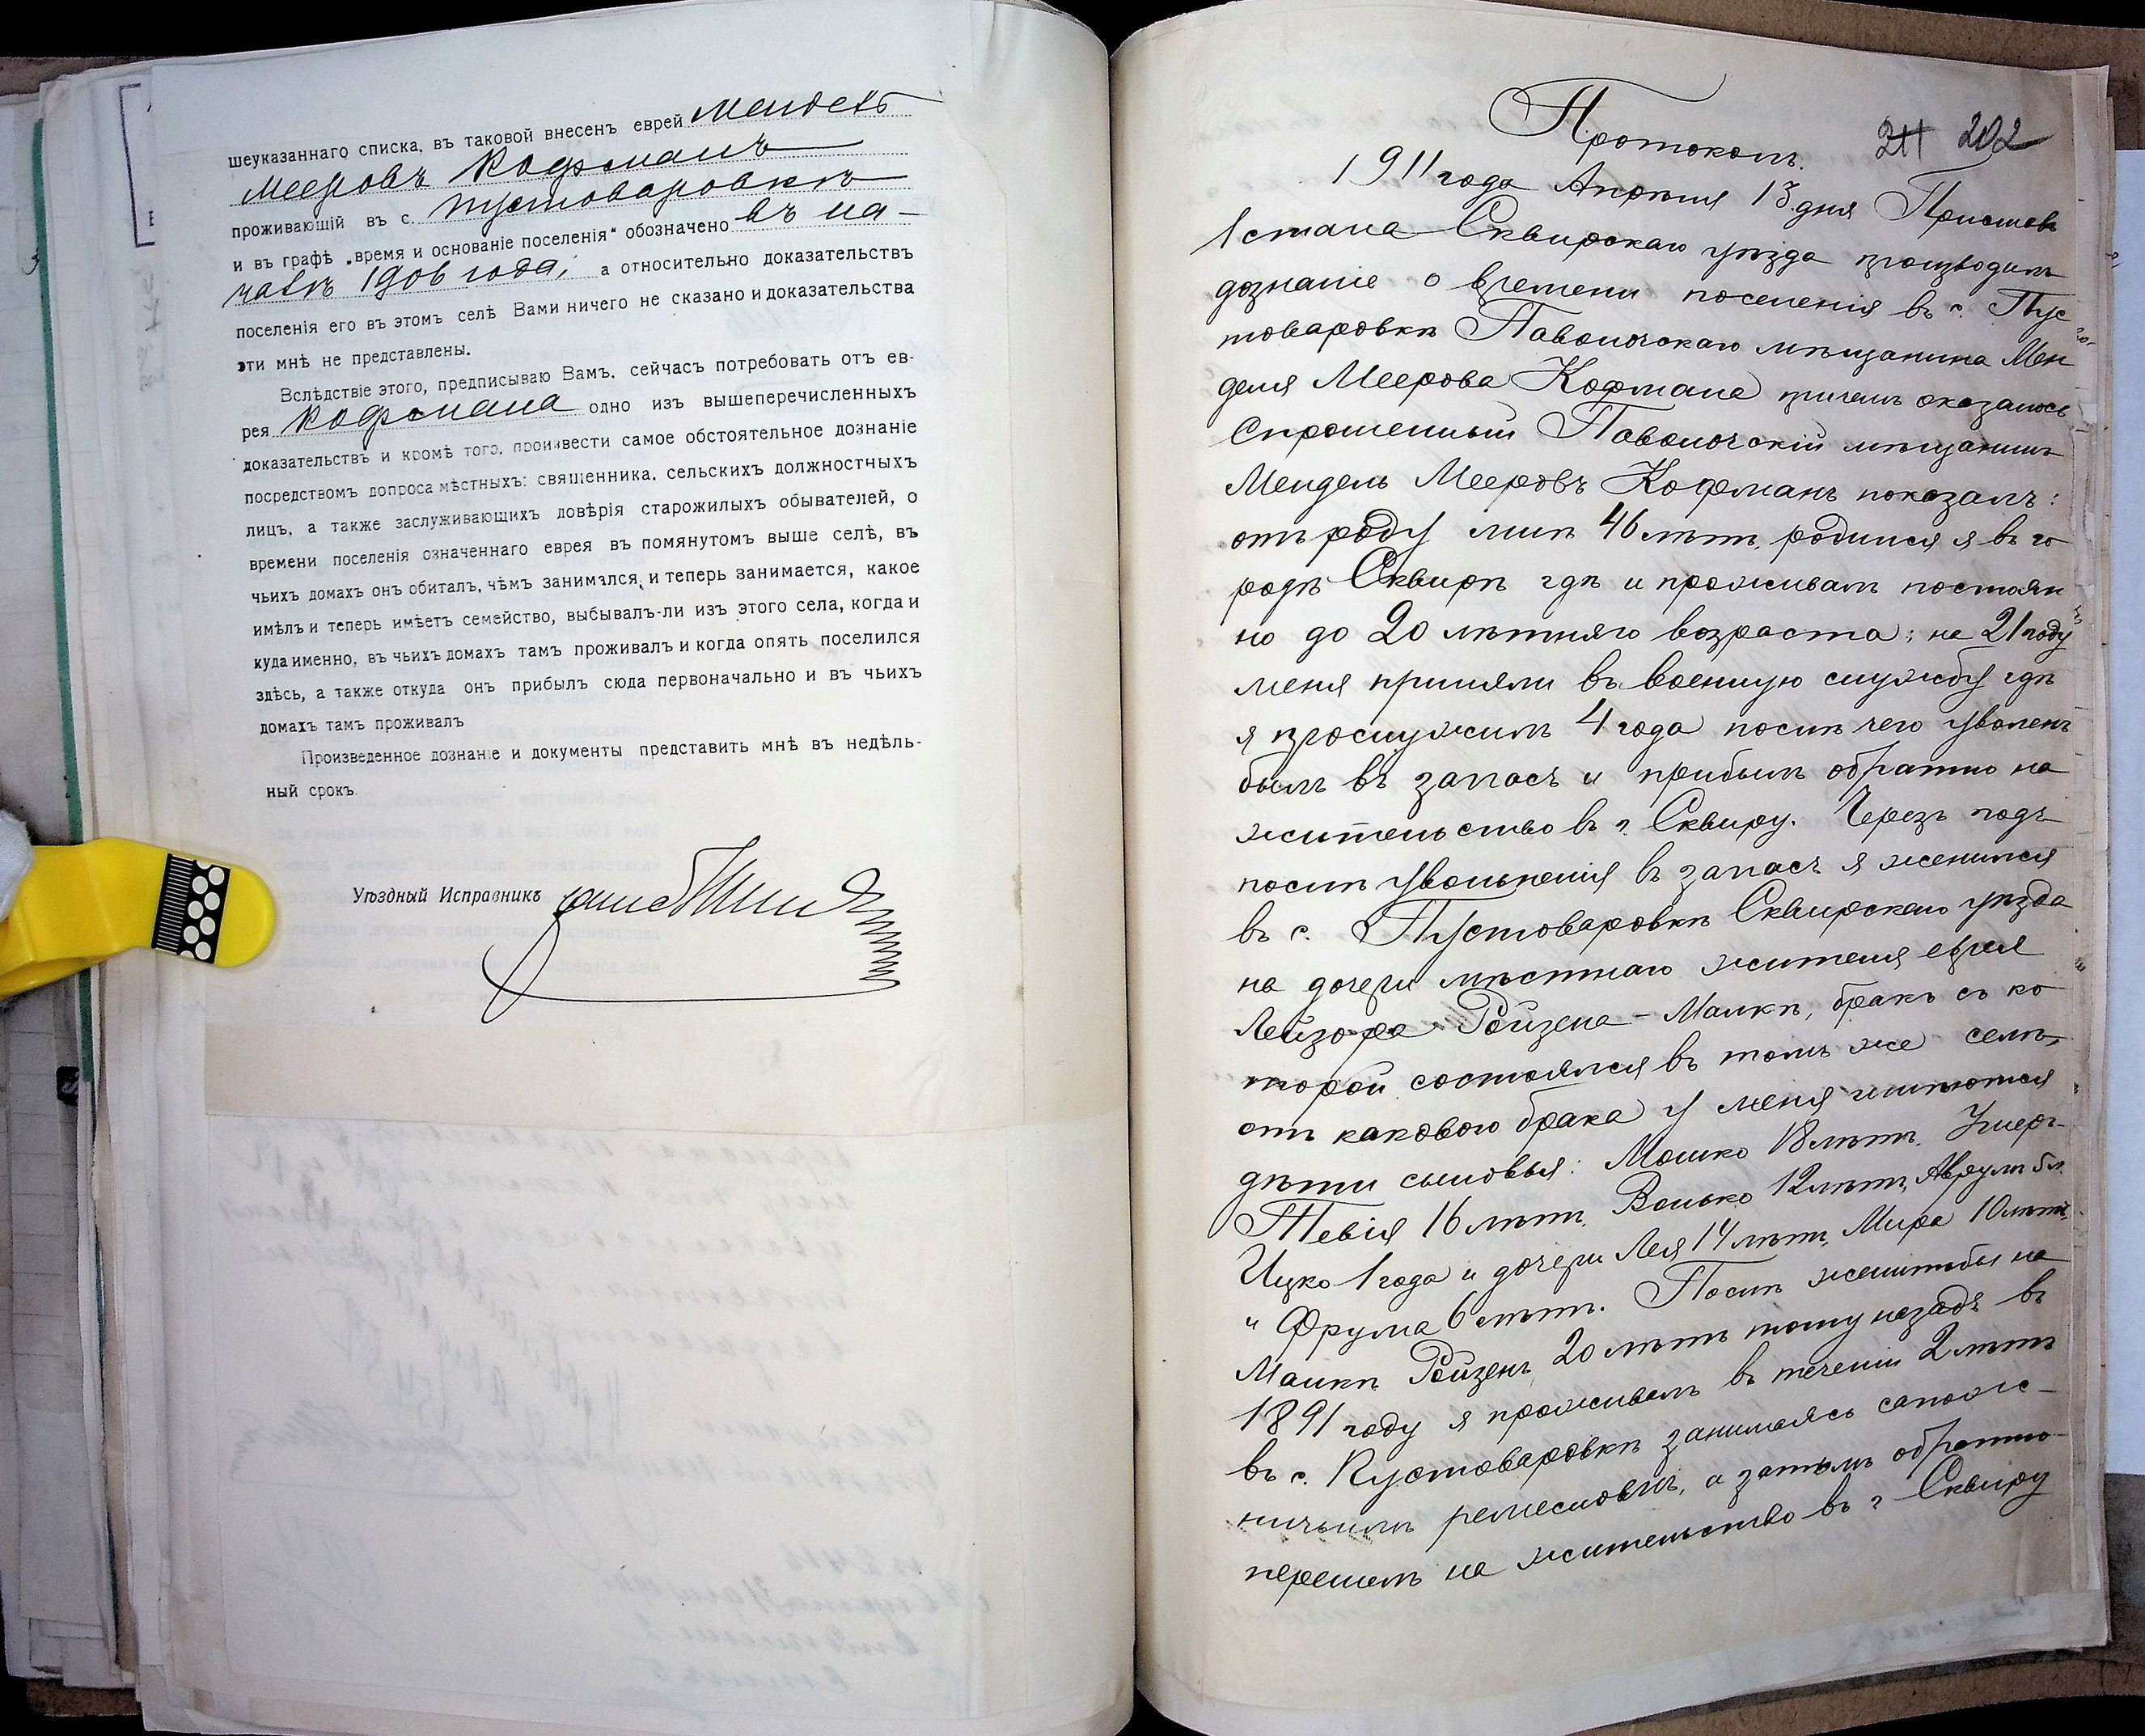 шеуказаннаго списка, въ таковой внесенъ еврей Мендель
Мееровъ Кофманъ
проживающій въ с. Пустоваровкѣ
и въ графѣ „время и основаніе поселенія“ обозначено въ на-
чалѣ 1906 года; а относительно доказательствъ
поселенія его въ этомъ селѣ Вами ничего не сказано и доказательства
эти мнѣ не представлены.
Вслѣдствіе этого, предписываю Вамъ, сейчасъ потребовать отъ ев-
рея Кофмана одно изъ вышеперечисленныхъ
доказательствъ и кромѣ того, произвести самое обстоятельное дознаніе
посредствомъ допроса мѣстныхъ: священника, сельскихъ должностныхъ
лицъ, а также заслуживающихъ довѣрія старожилыхъ обывателей, о
времени поселенія означеннаго еврея въ помянутомъ выше селѣ, въ
чьихъ домахъ онъ обиталъ, чѣмъ занимался и теперь занимается, какое
имѣлъ и теперь имѣетъ семейство, выбывалъ-ли изъ этого села, когда и
куда именно, въ чьихъ домахъ тамъ проживалъ и когда опять поселился
здѣсь, а также откуда онъ прибылъ сюда первоначально и въ чьихъ
домахъ тамъ проживалъ
Произведенное дознаніе и документы представить мнѣ въ недѣль-
ный срокъ.
Уѣздный Исправникъ
Протоколъ.
211 202
1911 года Апрѣля 13 дня Приставъ
1 стана Сквирскаго уѣзда производилъ
дознаніе о времени поселенія въ с. Пус
товаровкѣ Паволочскаго мѣщанина Мен
деля Меерова Кофмана причемъ оказалось
Спрошенный Паволочскій мѣщанинъ
Мендель Мееровъ Кофманъ показалъ:
отъ роду мнѣ 46 лѣтъ, родился я въ го
родѣ Сквирѣ гдѣ и проживалъ постоян
но до 20 лѣтняго возраста; на 21 году
меня приняли въ военную службу гдѣ
я прослужилъ 4 года послѣ чего уволенъ
былъ въ запасъ и прибылъ обратно на
жительство въ г. Сквиру. Черезъ годъ
послѣ увольненія въ запасъ я женился
въ с. Пустоваровкѣ Сквирскаго уѣзда
на дочери мѣстнаго жителя еврея
Лейзора Ройзена - Малкѣ, бракъ съ ко
торой состоялся въ томъ же селѣ,
отъ какового брака у меня имѣются
дѣти сыновья: Мошко 18 лѣтъ,
Тевія 16 лѣтъ, Волько 12 лѣтъ, Аврумъ 5 л.
Ицко 1 года и дочери Лея 14 лѣтъ, Мира 10 лѣтъ,
и Фрума 6 лѣтъ. Послѣ женитьбы на
Малкѣ Ройзенъ, 20 лѣтъ тому назадъ въ
1891 году я проживалъ въ теченіи 2 лѣтъ
въ с. Пустоваровкѣ занимаясь сапож-
ничьимъ ремесломъ, а затѣмъ обратно
перешелъ на жительство въ г Сквиру